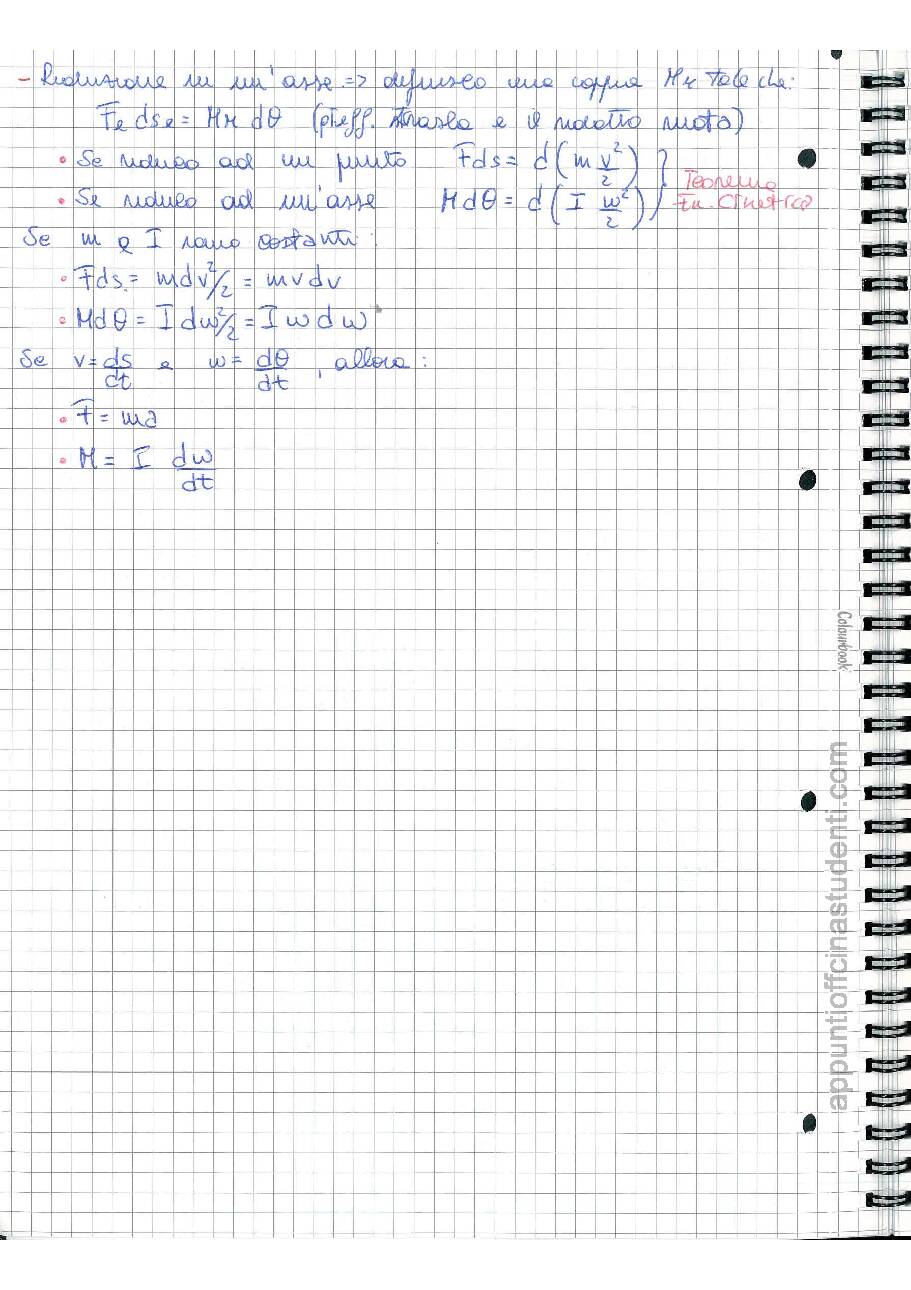 - Riduzione su un'asse => definisco una coppia Mr tale che:
Fe dse = Mr dθ (pt eff. trasla e il ridotto ruota)
• Se riduco ad un punto Fds = d(m v²/2)
• Se riduco ad un'asse Mdθ = d(I w²/2)
Teorema En. Cinetica
Se m e I sono costanti:
• Fds = mdv²/2 = mvdv
• Mdθ = I dw²/2 = I w dw
Se v = ds/dt e w = dθ/dt, allora:
• F = ma
• M = I dw/dt
Colourbook
appuntioffcinastudenti.com